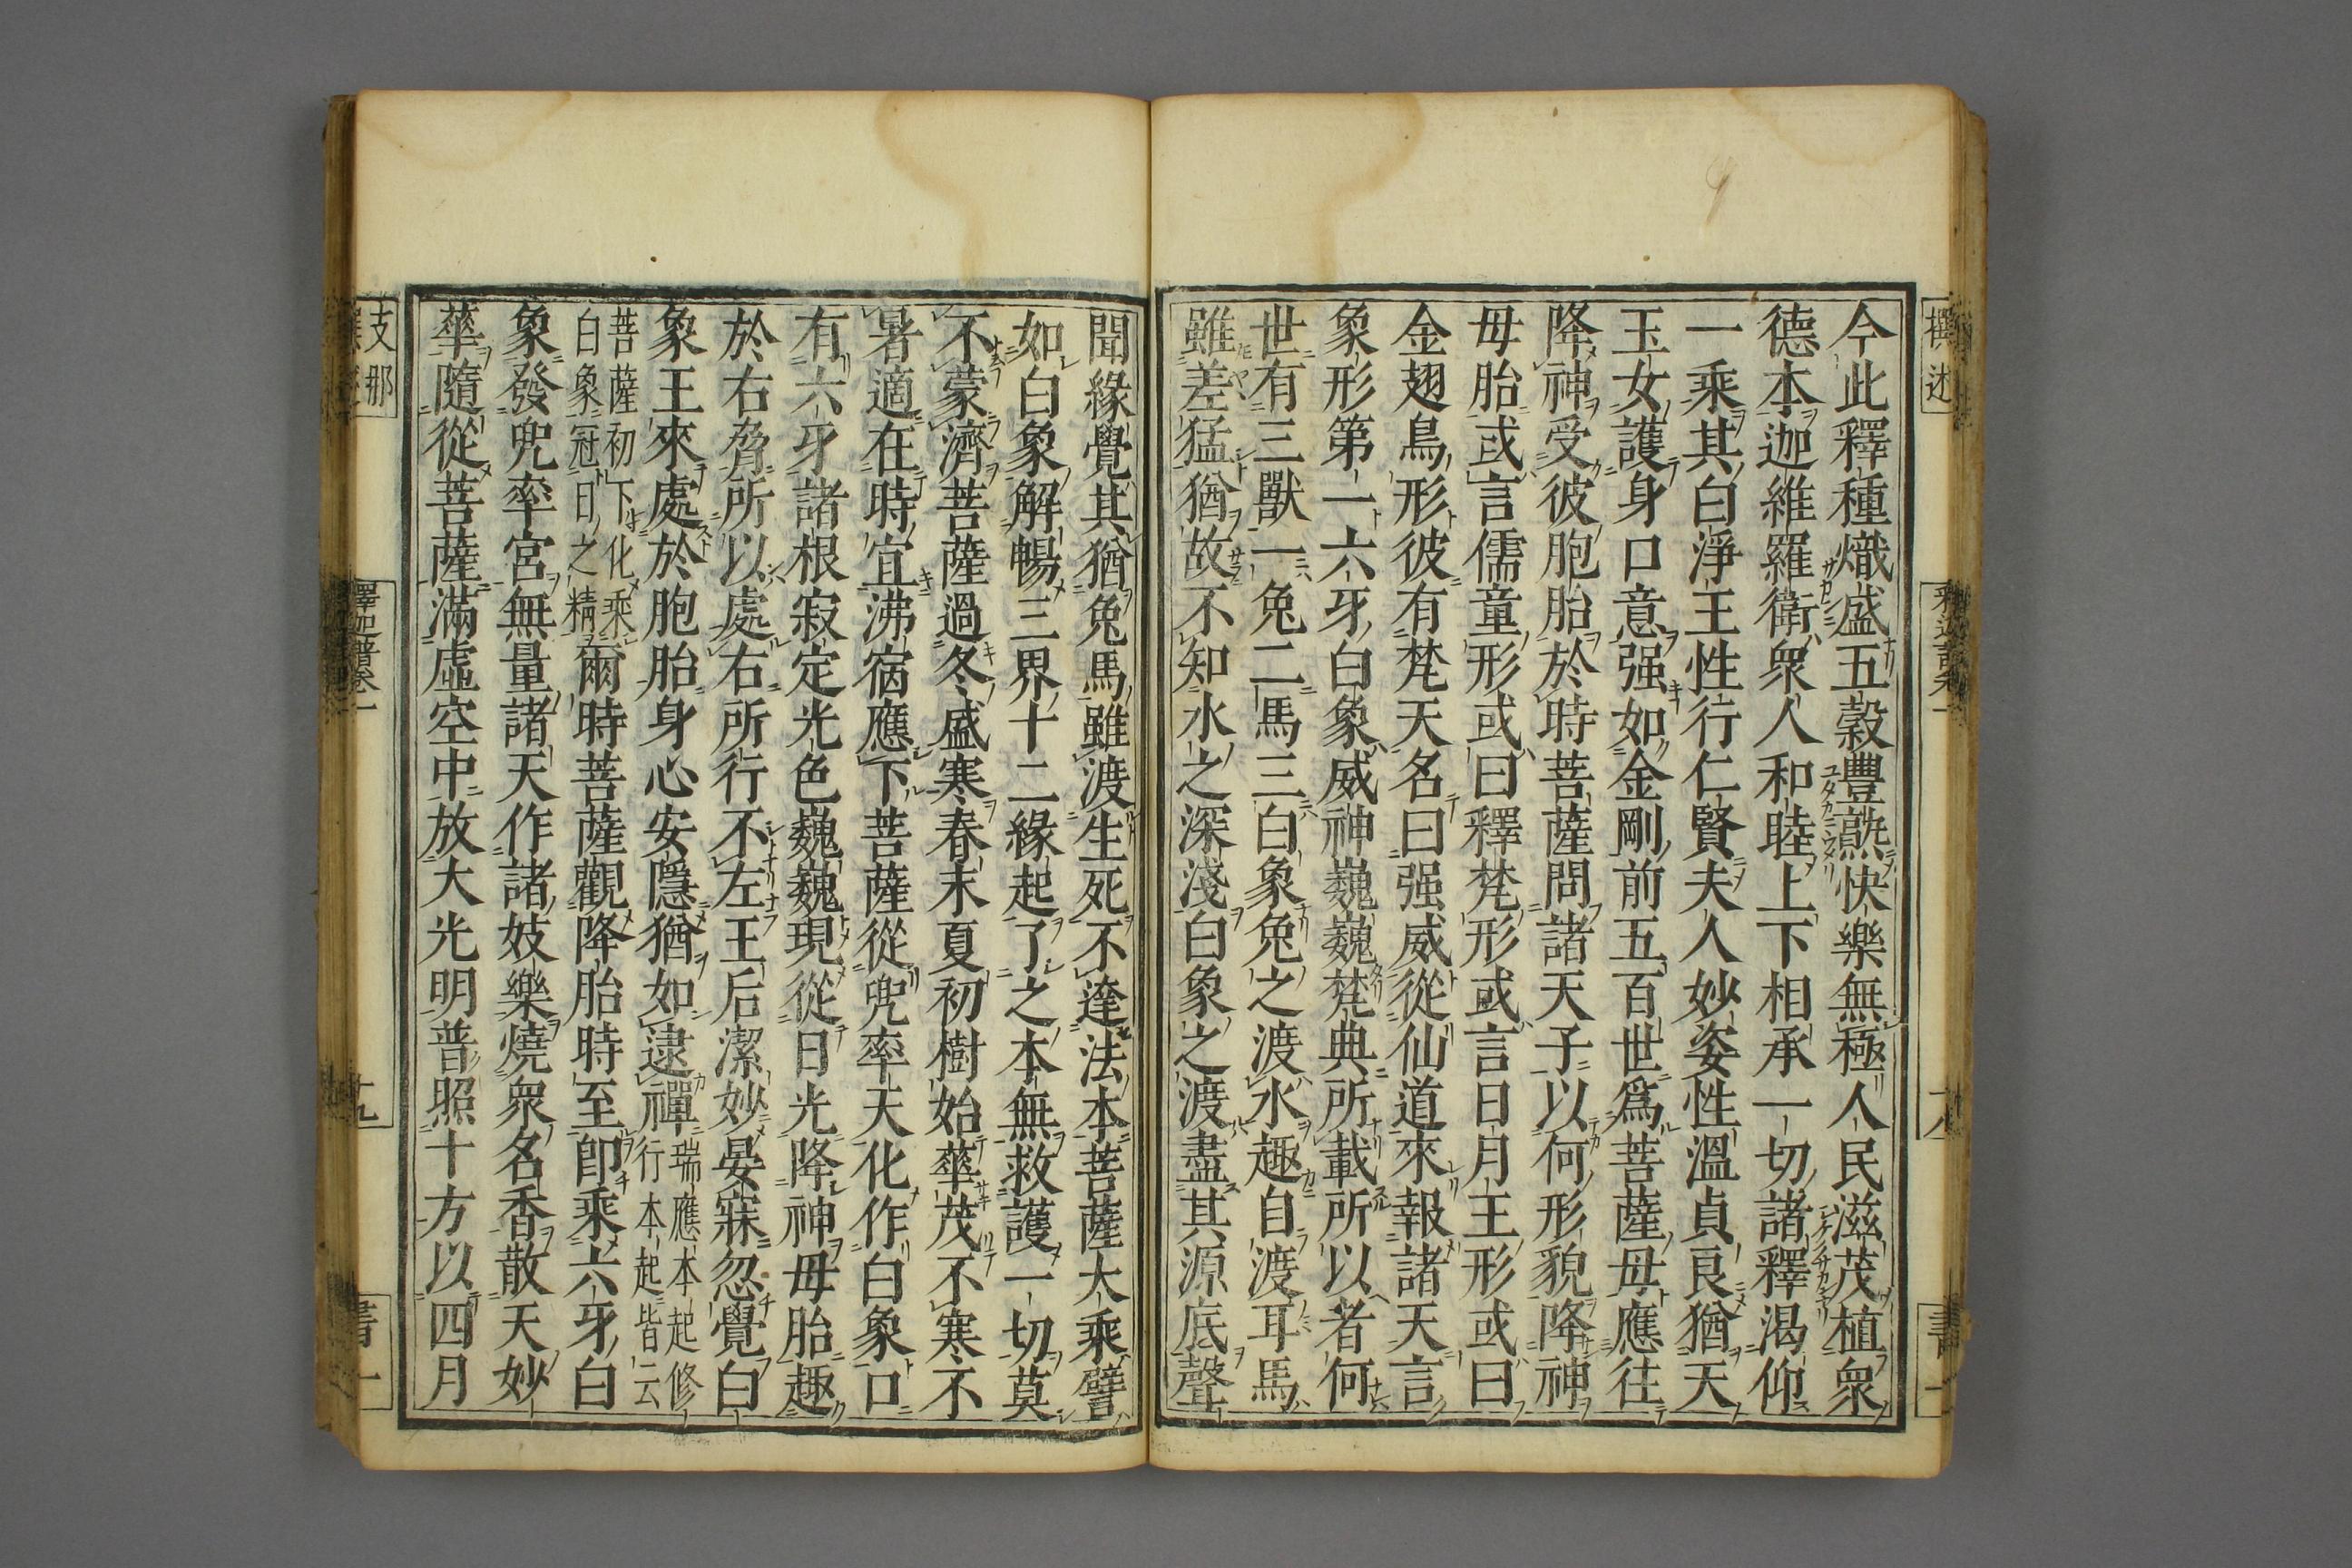 今此釋種熾盛五穀豐熟快樂無極人民滋茂植衆
德本迦維羅衛衆人和睦上下相承一切諸釋渴仰
一乘其白淨王性行仁賢夫人妙姿性溫貞良猶天
玉女護身口意强如金剛前五百世爲菩薩母應往
降神受彼胞胎於時菩薩問諸天子以何形貌降神
母胎或言儒童形或曰釋梵形或言日月王形或曰
金翅鳥形彼有梵天名曰强威從仙道來報諸天言
象形第一六牙白象威神巍巍梵典所載所以者何
世有三獸一兔二馬三白象兔之渡水趣自渡耳馬
雖差猛猶故不知水之深淺白象之渡盡其源底聲
聞緣覺其猶兔馬雖渡生死不達法本菩薩大乘譬
如白象解暢三界十二緣起了之本無救護一切莫
不蒙濟菩薩過冬盛寒春末夏初樹始華茂不寒不
暑適在時宜沸宿應下菩薩從兜率天化作白象口
有六牙諸根寂定光色巍巍現從日光降神母胎趣
於右脅所以處右所行不左王后潔妙晏寐忽覺白
象王來處於胞胎身心安隱猶如逮禪瑞應本起修
行本起皆云
菩薩初下化乘
白象冠日之精爾時菩薩觀降胎時至卽乘六牙白
象發兜率宮無量諸天作諸妓樂燒衆名香散天妙
華隨從菩薩滿虛空中放大光明普照十方以四月
撰述
十八
支那
釋迦譜卷一
十九
書一